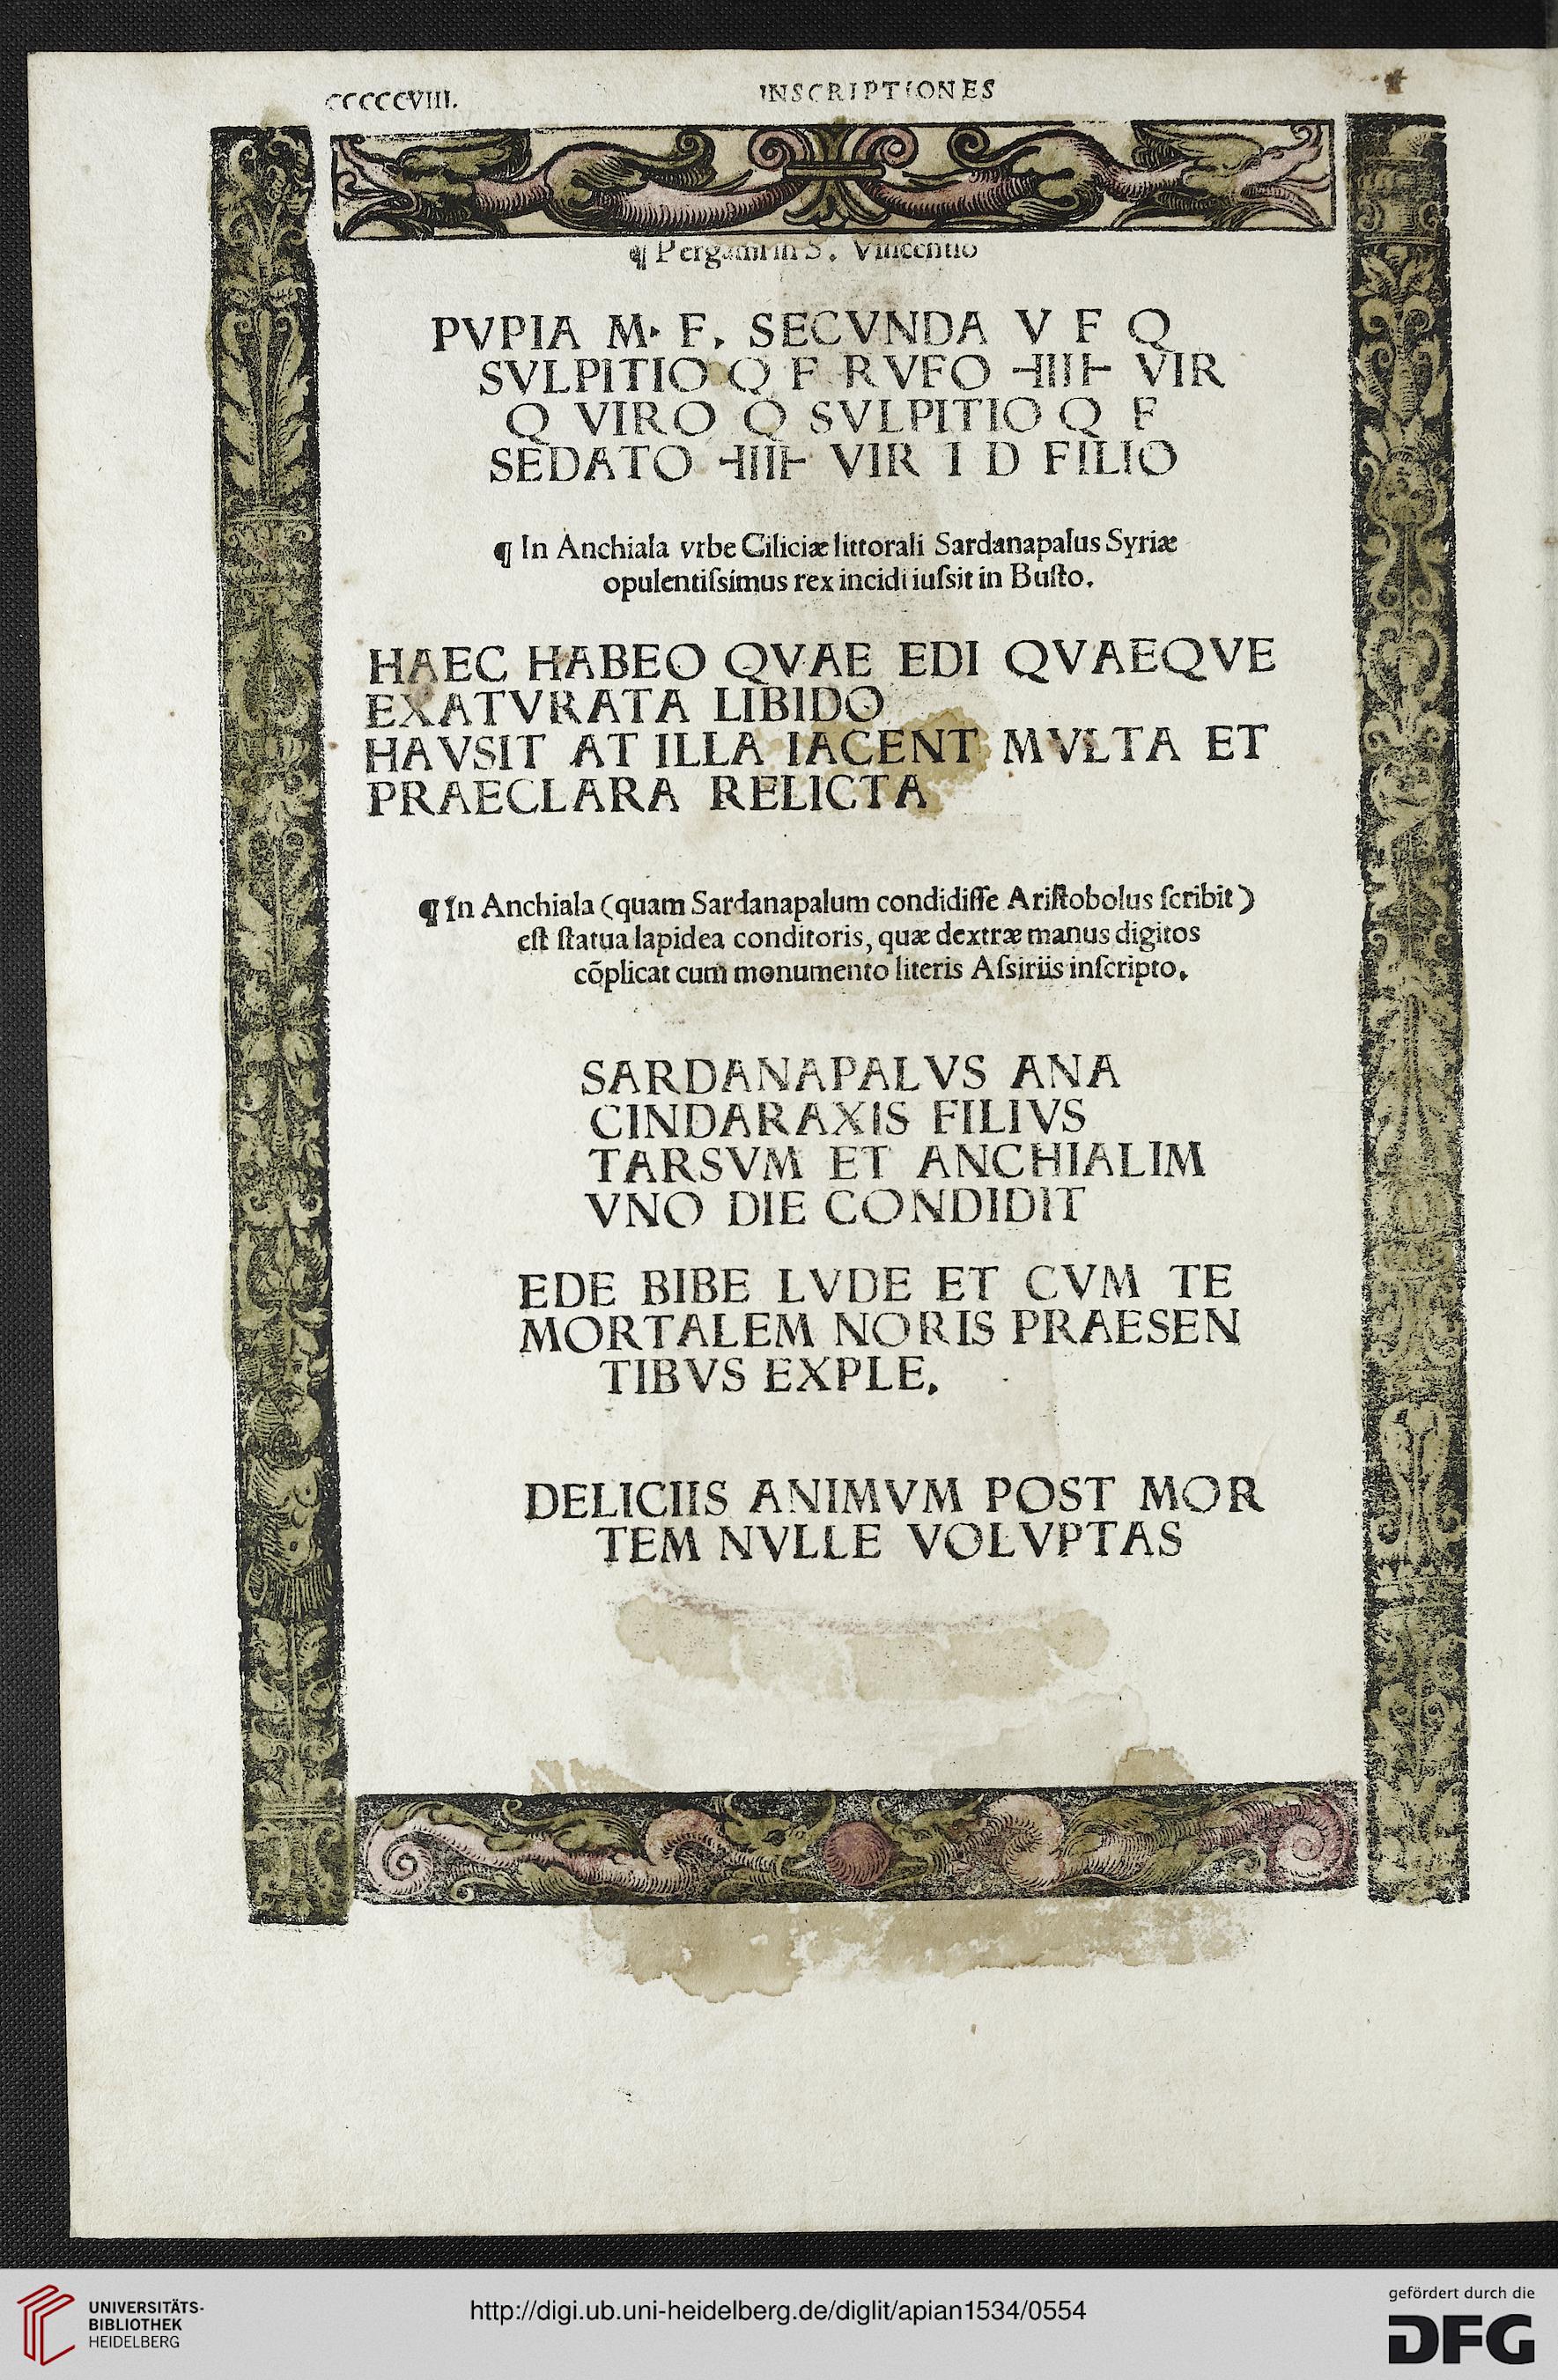 CCCCCVIII.
INSCRIPTIONES
¶ Pergami in S. Vincentio
PVPIA M· F. SECVNDA V F Q
SVLPITIO Q F RVFO ꟷIIIIꟷ VIR
Q VIRO Q SVLPITIO Q F
SEDATO ꟷIIIIꟷ VIR I D FILIO
¶ In Anchiala vrbe Ciliciæ littorali Sardanapalus Syriæ
opulentiſsimus rex incidi iuſsit in Buſto.
HAEC HABEO QVAE EDI QVAEQVE
EXATVRATA LIBIDO
HAVSIT AT ILLA IACENT MVLTA ET
PRAECLARA RELICTA
¶ In Anchiala (quam Sardanapalum condidiſſe Ariſtobolus ſcribit)
eſt ſtatua lapidea conditoris, quæ dextræ manus digitos
cõplicat cum monumento literis Aſsiriis inſcripto.
SARDANAPALVS ANA
CINDARAXIS FILIVS
TARSVM ET ANCHIALIM
VNO DIE CONDIDIT
EDE BIBE LVDE ET CVM TE
MORTALEM NORIS PRAESEN
TIBVS EXPLE.
DELICIIS ANIMVM POST MOR
TEM NVLLE VOLVPTAS
UNIVERSITÄTS-
BIBLIOTHEK
HEIDELBERG
http://digi.ub.uni-heidelberg.de/diglit/apian1534/0554
gefördert durch die
DFG